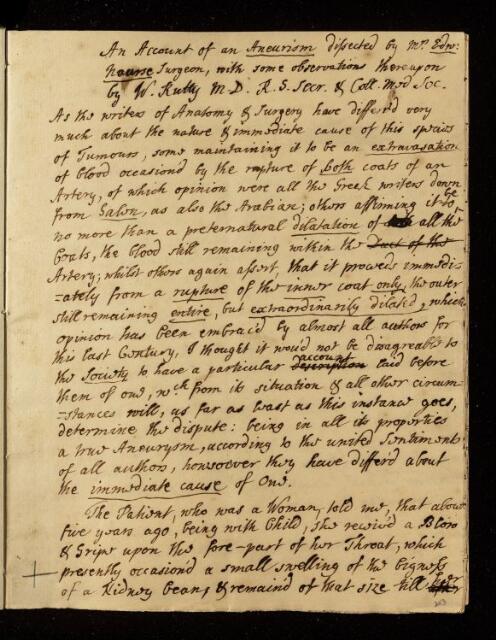 An Account of an Aneurism dissected by Mr. Edw:
Nourse Surgeon, with some observations thereupon
by W. Rutty M.D. R.S. Secr. & Coll. Med Soc.
As the writers of Anatomy & Surgery have differ'd very
much about the nature & immediate cause of this species
of Tumours, some maintaining it to be an extravasation
of blood occasion'd by the rupture of both coats of an
Artery, of which opinion were all the Greek writers down
from Galen, as also the Arabian; others affirming it to be
no more than a preternatural dilatation of all the
Coats, the blood still remaining within the Duct of the
Artery; whilst others again assert, that it proceeds immedi-
-ately from a rupture of the inner coat only, the outer
still remaining entire, but extraordinarily dilated, which
opinion has been embrac'd by almost all authors for
this last Century, I thought it would not be disagreable to
the Society to have a particular description account laid before
them of one, wch from its situation & all other circum-
-stances will, as far as least as this instance goes,
determine the dispute: being in all its properties
a true Aneurysm, according to the united Sentiments
of all authors, howsoever they have differ'd about
the immediate cause of One.
The Patient, who was a Woman, told me, that about
five years ago, being with Child, she receiv'd a Blow
& Gripe upon the fore-part of her Throat, which
presently occasion'd a small swelling of the bigness
of a Kidney bean, & remain'd of that size till